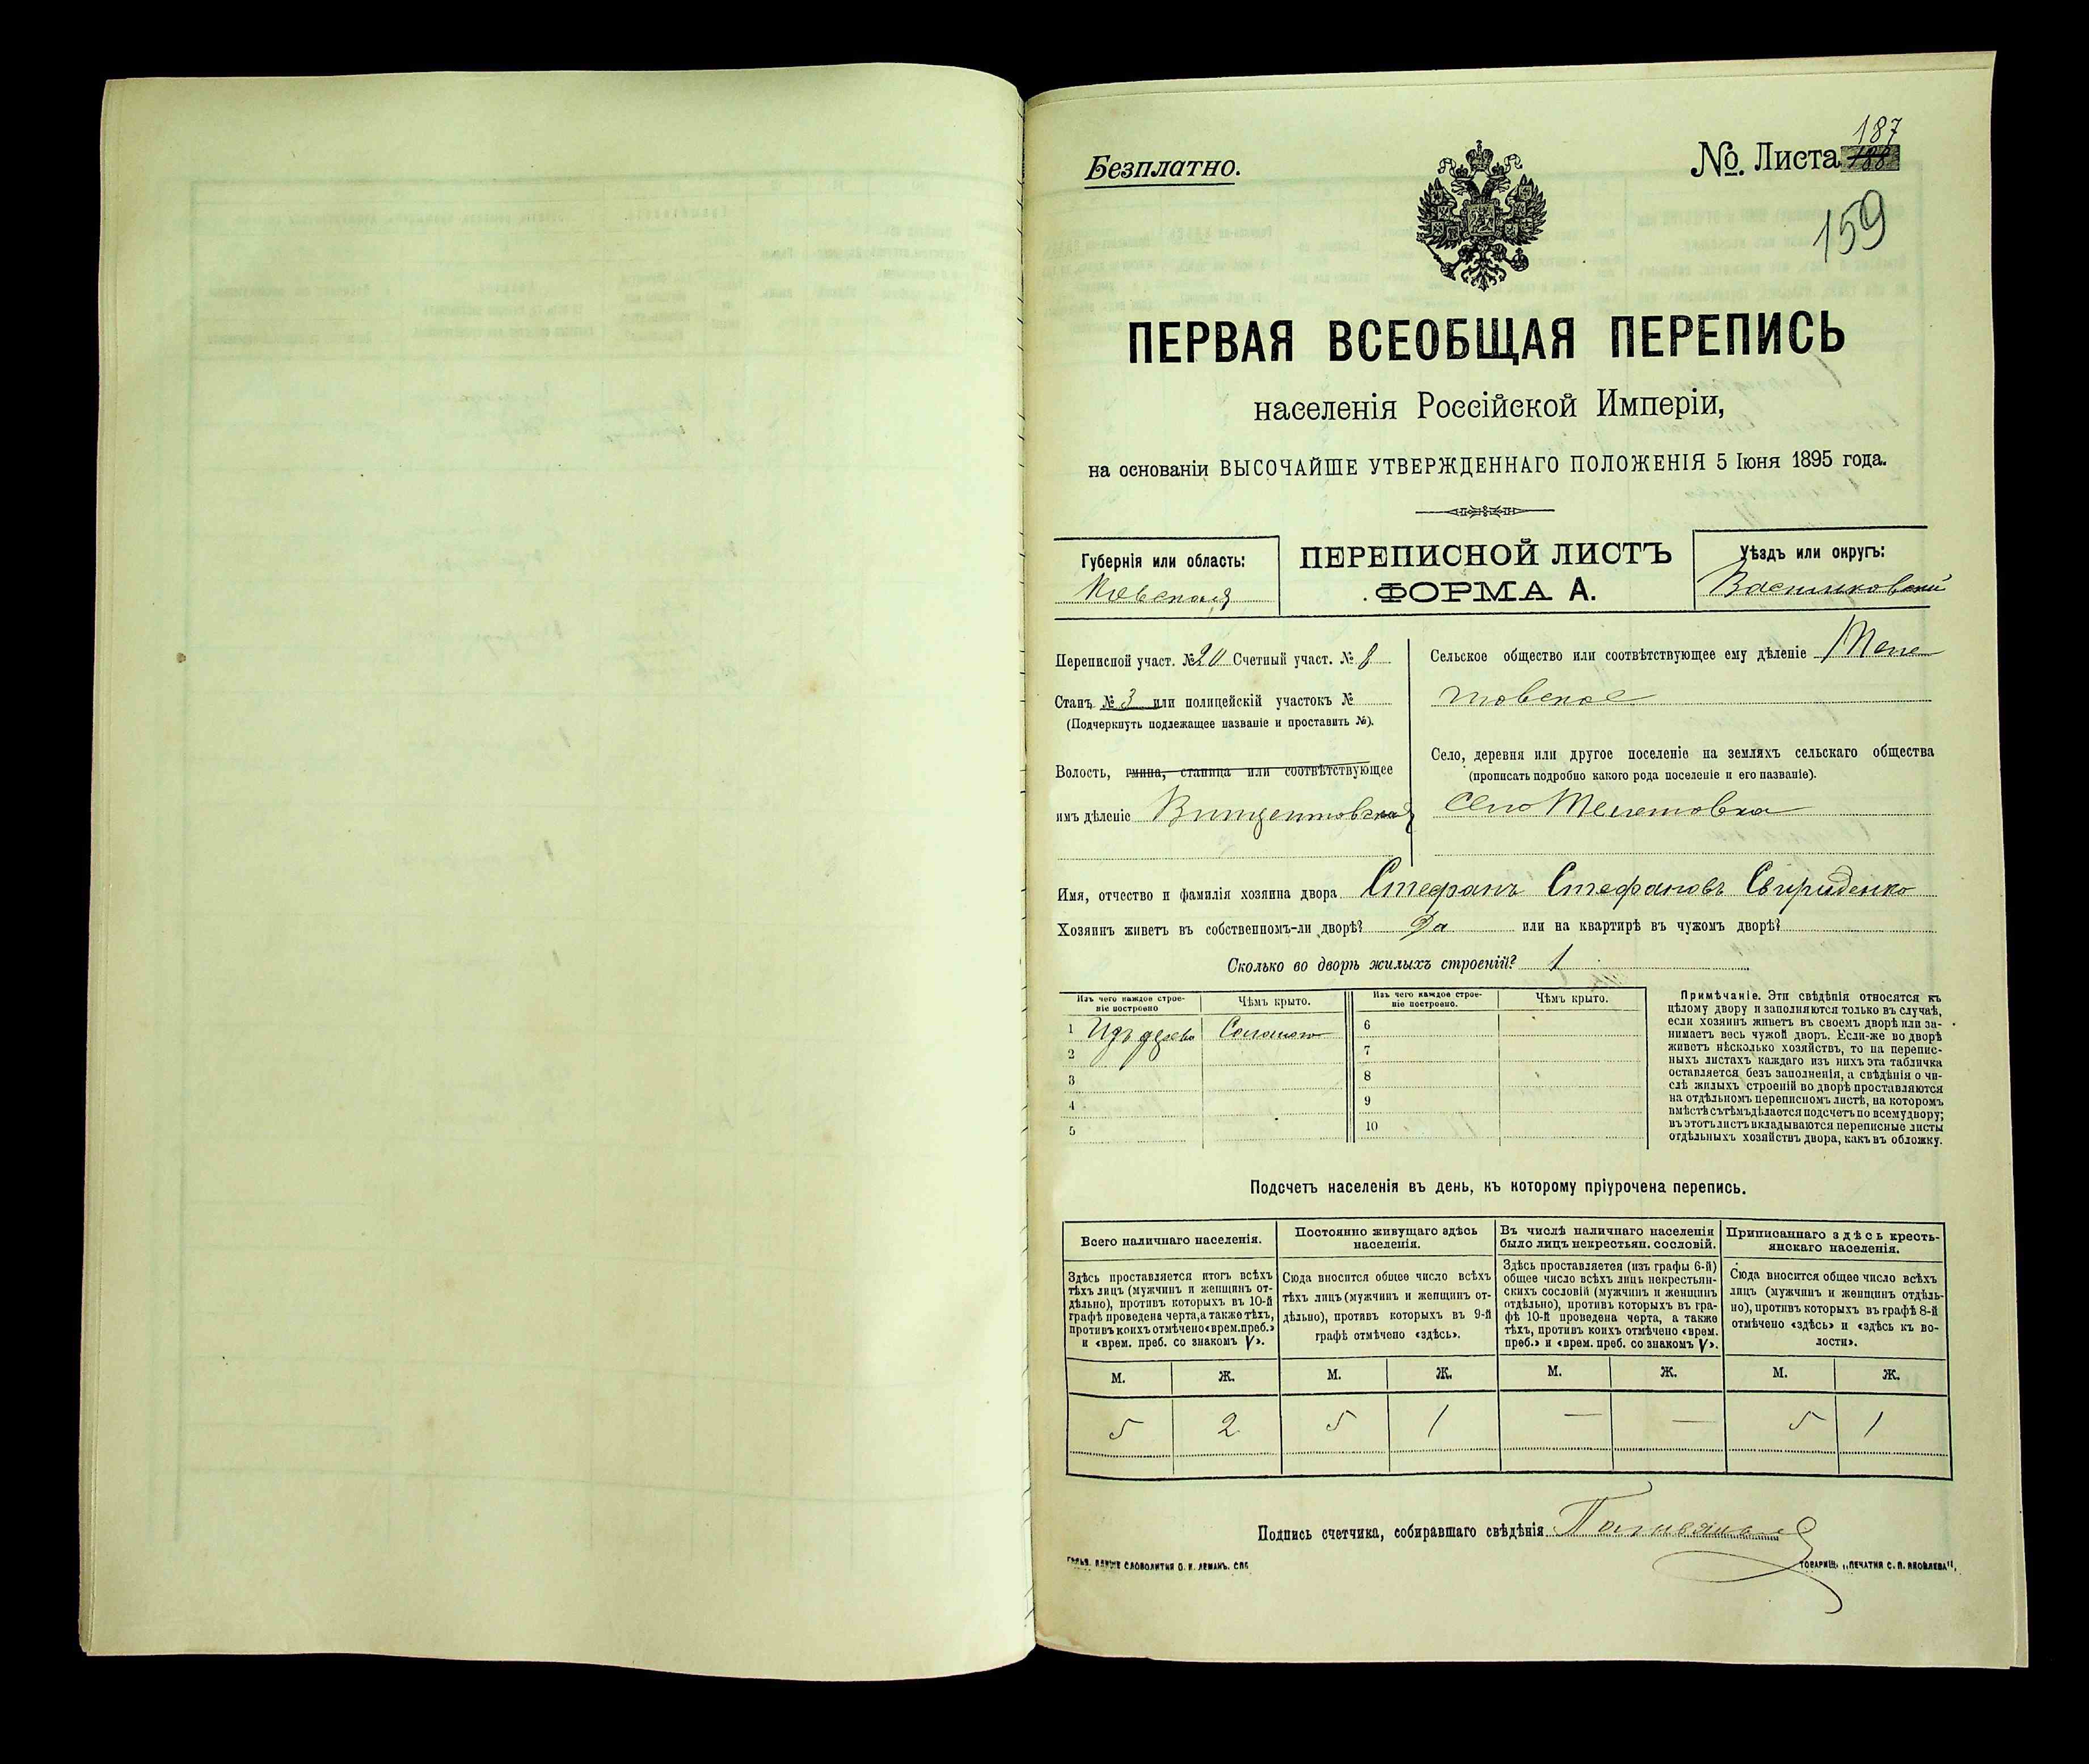 Безплатно.
№. Листа 187
188
159
ПЕРВАЯ ВСЕОБЩАЯ ПЕРЕПИСЬ
населенія Россійской Имперіи,
на основаніи ВЫСОЧАЙШЕ УТВЕРЖДЕННАГО ПОЛОЖЕНІЯ 5 Іюня 1895 года.
Губернія или область:
Кіевская
ПЕРЕПИСНОЙ ЛИСТЪ
ФОРМА А.
Уѣздъ или округъ:
Васильковскій
Переписной участ. № 20 Счетный участ. № 8
Станъ № 3 или полицейскій участокъ №
(Подчеркнуть подлежащее названіе и проставить №).
Волость, гмина, станица или соотвѣтствующее
имъ дѣленіе Винцентовская
Сельское общество или соотвѣтствующее ему дѣленіе Теле
товское
Село, деревня или другое поселеніе на земляхъ сельскаго общества
(прописать подробно какого рода поселеніе и его названіе).
Село Телетовка
Имя, отчество и фамилія хозяина двора Стефанъ Стефановъ Свириденко
Хозяинъ живетъ въ собственномъ-ли дворѣ? Да или на квартирѣ въ чужомъ дворѣ?
Сколько во дворѣ жилыхъ строеній? 1
Изъ чего каждое строе-
ніе построено
Чѣмъ крыто.
Изъ чего каждое строе-
ніе построено.
Чѣмъ крыто.
1 Изъ дерева Соломою
2
3
4
5
6
7
8
9
10
Примѣчаніе. Эти свѣдѣнія относятся къ
цѣлому двору и заполняются только въ случаѣ,
если хозяинъ живетъ въ своемъ дворѣ или за-
нимаетъ весь чужой дворъ. Если-же во дворѣ
живетъ нѣсколько хозяйствъ, то на перепис-
ныхъ листахъ каждаго изъ нихъ эта табличка
оставляется безъ заполненія, а свѣдѣнія о чи-
слѣ жилыхъ строеній во дворѣ проставляются
на отдѣльномъ переписномъ листѣ, на которомъ
вмѣстѣ съ тѣмъ дѣлается подсчетъ по всему двору;
въ этотъ листъ вкладываются переписные листы
отдѣльныхъ хозяйствъ двора, какъ въ обложку.
Подсчетъ населенія въ день, къ которому пріурочена перепись.
Всего наличнаго населенія.
Здѣсь проставляется итогъ всѣхъ
тѣхъ лицъ (мужчинъ и женщинъ от-
дѣльно), противъ которыхъ въ 10-й
графѣ проведена черта, а также тѣхъ,
противъ коихъ отмѣчено «врем. преб.»
и «врем. преб. со знакомъ V».
Постоянно живущаго здѣсь
населенія.
Сюда вносится общее число всѣхъ
тѣхъ лицъ (мужчинъ и женщинъ от-
дѣльно), противъ которыхъ въ 9-й
графѣ отмѣчено «здѣсь».
Въ числѣ наличнаго населенія
было лицъ некрестьян. сословій.
Здѣсь проставляется (изъ графы 6-й)
общее число всѣхъ лицъ некрестьян-
скихъ сословій (мужчинъ и женщинъ
отдѣльно), противъ которыхъ въ гра-
фѣ 10-й проведена черта, а также
тѣхъ, противъ коихъ отмѣчено «врем.
преб.» и «врем. преб. со знакомъ V».
Приписаннаго здѣсь кресть-
янскаго населенія.
Сюда вносится общее число всѣхъ
лицъ (мужчинъ и женщинъ отдѣль-
но), противъ которыхъ въ графѣ 8-й
отмѣчено «здѣсь» и «здѣсь къ во-
лости».
М. Ж. М. Ж. М. Ж. М. Ж.
5 2 5 1 — — 5 1
Подпись счетчика, собиравшаго свѣдѣнія
СЛОВОЛИТНЯ О. И. ЛЕМАНЪ. СПБ
ТОВАРИЩ. „ПЕЧАТНЯ С. П. ЯКОВЛЕВА",